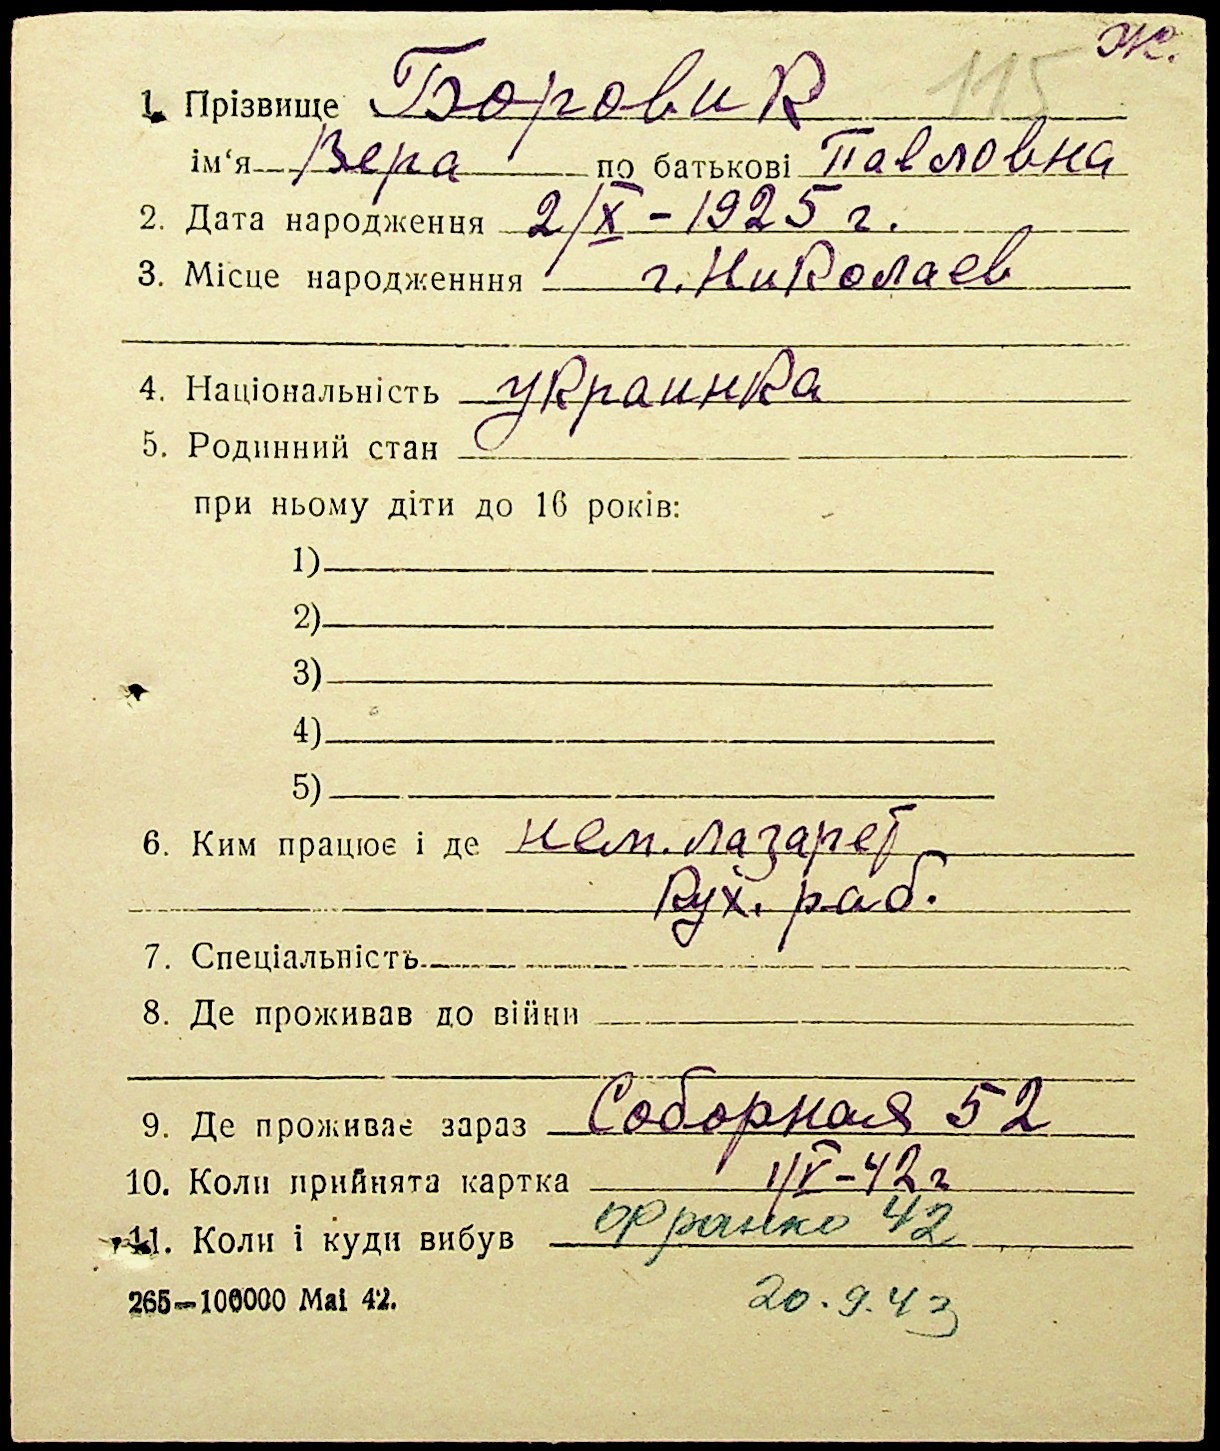 ж.
115
1. Прізвище Боровик
ім‘я Вера по батькові Павловна
2. Дата народження 2/X – 1925 г.
3. Місце народженння г. Николаев
4. Національність украинка
5. Родинний стан
при ньому діти до 16 років:
1)
2)
3)
4)
5)
6. Ким працює і де нем. лазарет
кух. раб.
7. Спеціальність
8. Де проживав до війни
9. Де проживає зараз Соборная 52
10. Коли прийнята картка 1/V – 42 г
11. Коли і куди вибув Франко 42
265—100000 Mai 42.
20.9.43